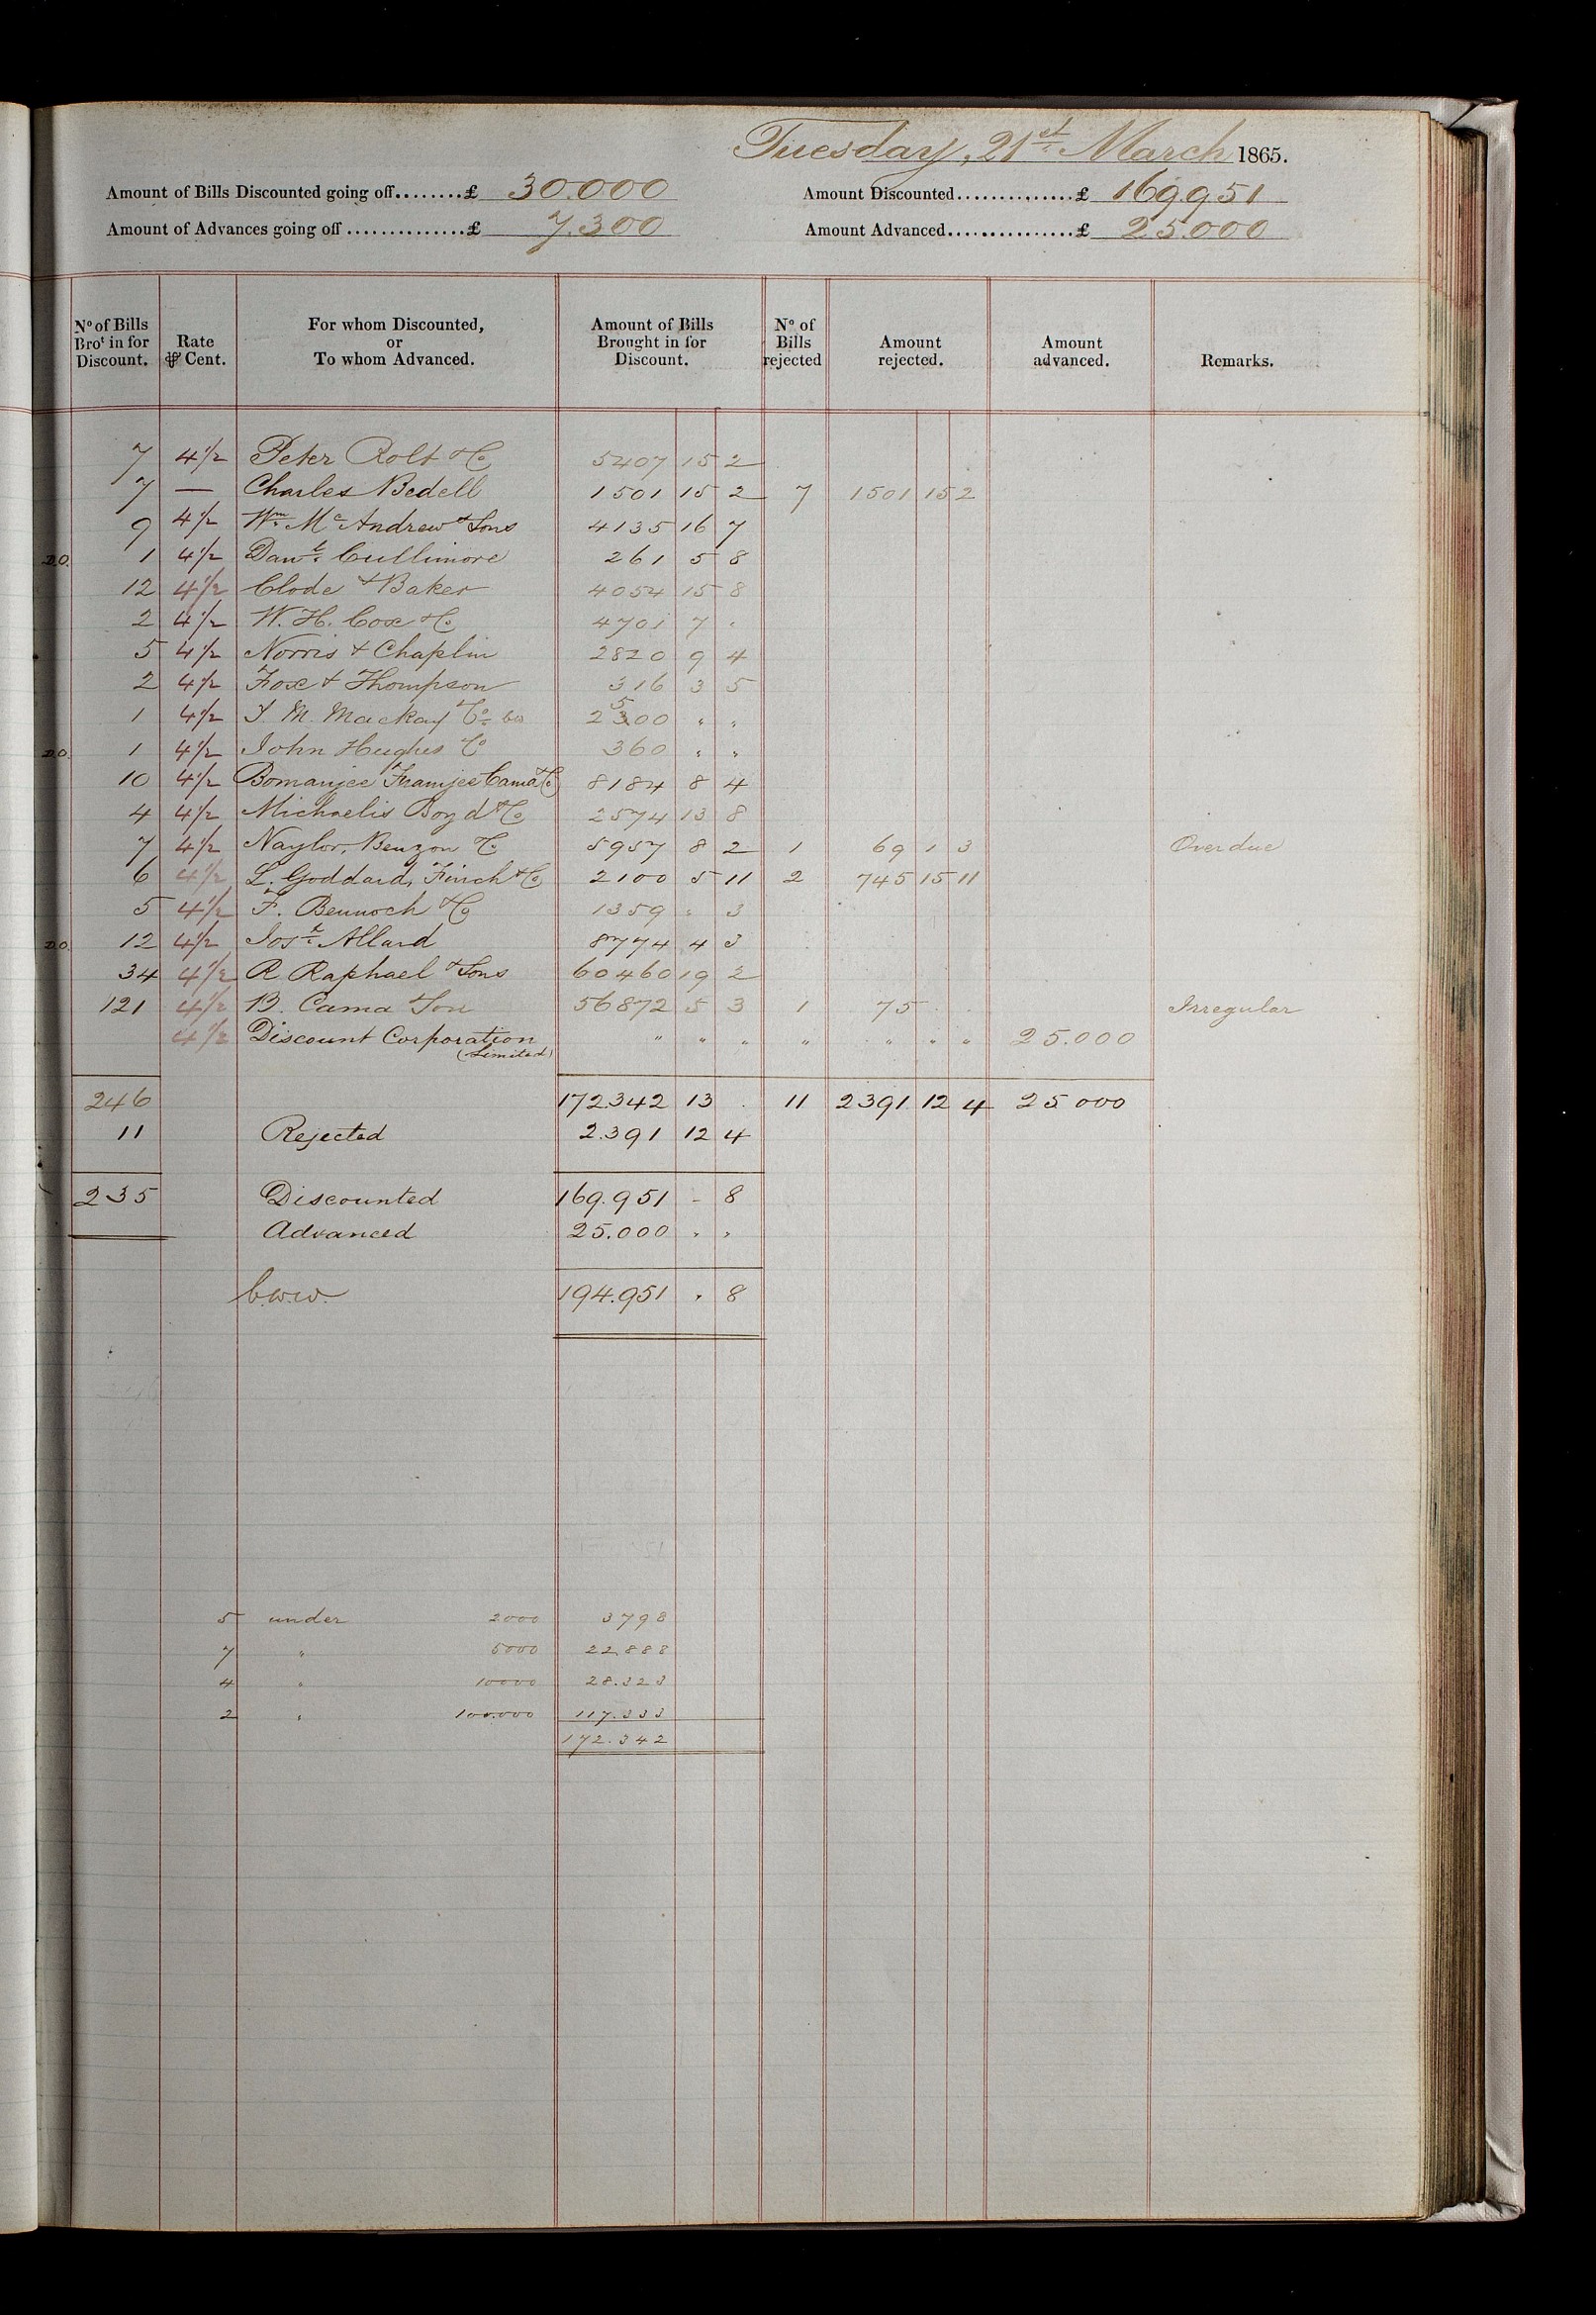 Tuesday, 21st March 1865.
Amount of Bills Discounted going off........£ 30.000 Amount Discounted.............£ 169.951
Amount of Advances going off..............£ 7.300 Amount Advanced...............£ 25.000
No of Bills Brot in for Discount. Rate ⅌ Cent. For whom Discounted, or To whom Advanced. Amount of Bills Brought in for Discount. No of Bills rejected Amount rejected. Amount advanced. Remarks.
7 4½ Peter Rolt & Co 5407 15 2
7 — Charles Bedell 1501 15 2 7 1501 15 2
9 4½ Wm McAndrew & Sons 4135 16 7
D.O. 1 4½ Danl Cullimore 261 5 8
12 4½ Clode & Baker 4054 15 8
2 4½ W. H. Cox & Co 4701 7 .
5 4½ Norris & Chaplin 2820 9 4
2 4½ Fox & Thompson 316 3 5
1 4½ T. M. Mackay & Co 2500 " "
D.O. 1 4½ John Hughes & Co 360 " "
10 4½ Bomanjee Framjee Cama & Co 8184 8 4
4 4½ Michaelis Boyd & Co 2574 13 8
7 4½ Naylor, Benzon & Co 5957 8 2 1 69 1 3 Overdue
6 4½ L. Goddard, Finch & Co 2100 5 11 2 745 15 11
5 4½ F. Bennoch & Co 1359 " 3
D.O. 12 4½ Josh Allard 8774 4 3
34 4½ R Raphael & Sons 60460 19 2
121 4½ B. Cama & Son 56872 5 3 1 75 . . Irregular
4½ Discount Corporation " " " " " " " 25.000
(Limited)
246 172.342 13 . 11 2391 12 4 25 000
11 Rejected 2.391 12 4
235 Discounted 169.951 - 8
Advanced 25.000 " "
C.W.W. 194.951 " 8
5 under 2000 3798
7 " 5000 22.888
4 " 10000 28.323
2 " 100.000 117.333
172.342